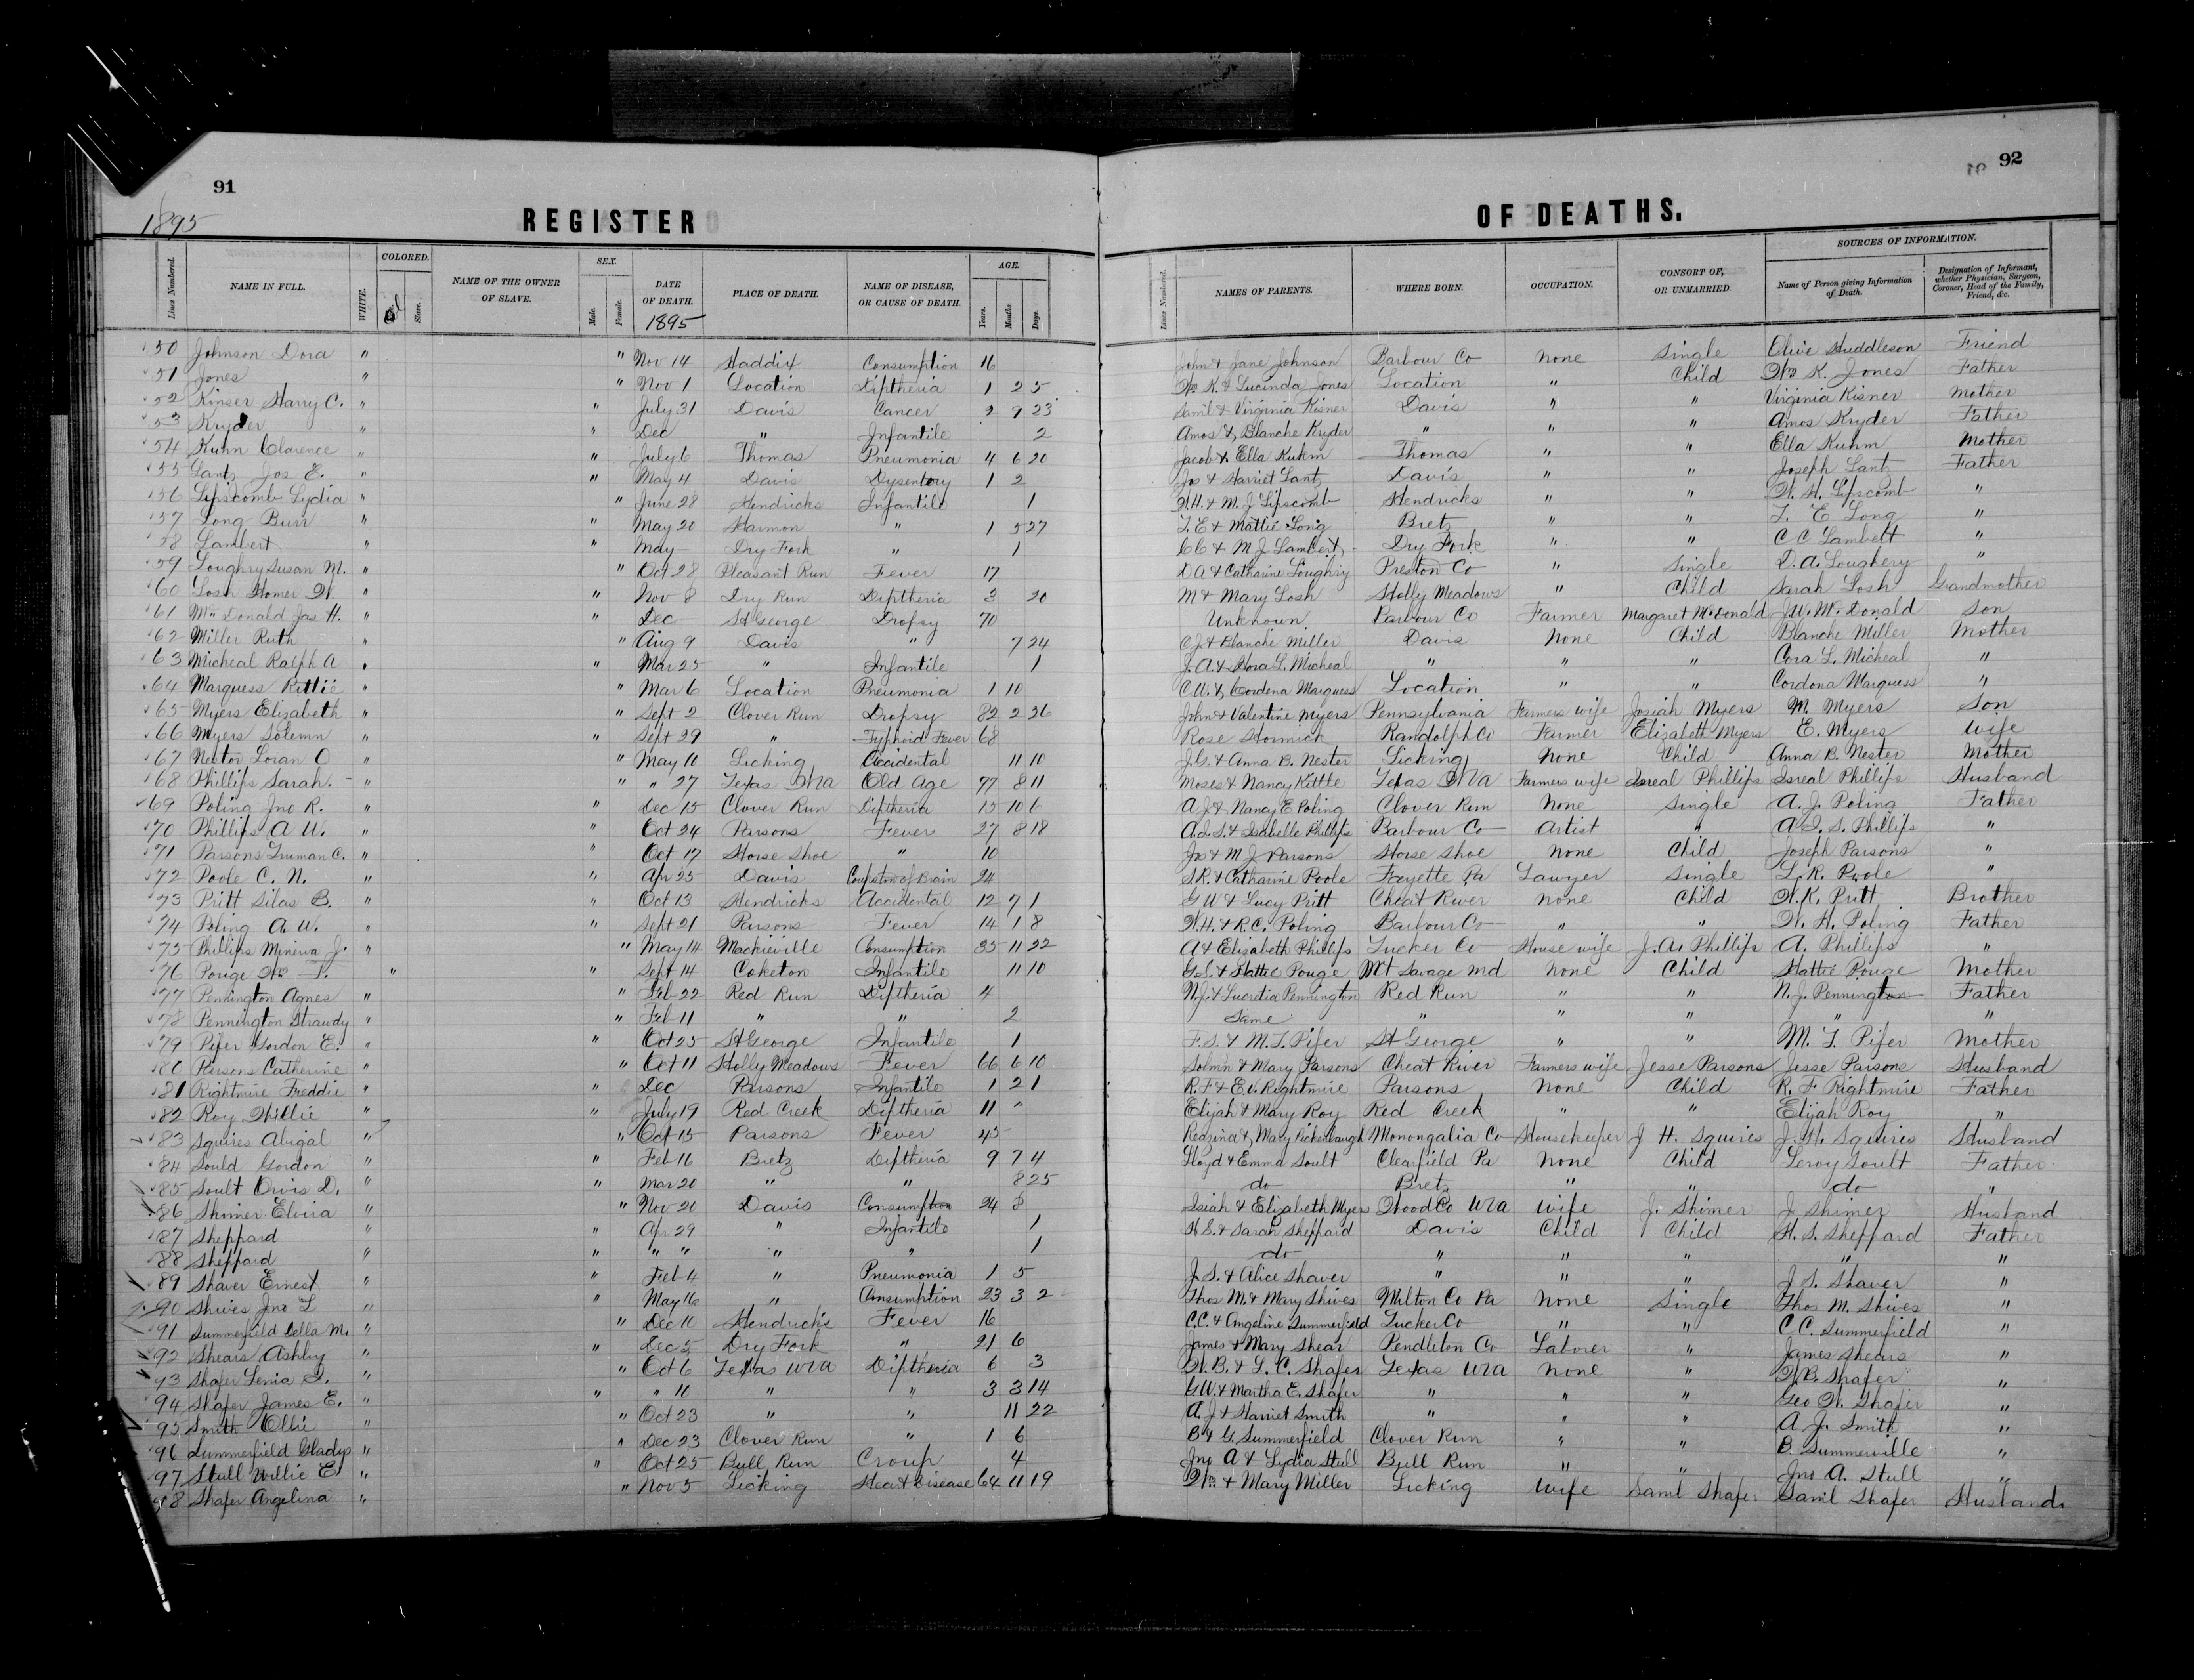 91
1895
REGISTER
92
OF DEATHS.
Lines Numbered. NAME IN FULL. WHITE. COLORED. Slave. NAME OF THE OWNER OF SLAVE. SEX. Male. Female. DATE OF DEATH. 1895 PLACE OF DEATH. NAME OF DISEASE, OR CAUSE OF DEATH. AGE. Years. Months Days. Lines Numbered. NAMES OF PARENTS. WHERE BORN. OCCUPATION. CONSORT OF, OR UNMARRIED. SOURCES OF INFORMATION. Name of Person giving Information of Death. Designation of Informant, whether Physician, Surgeon, Coroner, Head of the Family, Friend, &c.
50 Johnson Dora " " Nov 14 Haddix Consumption 16 John & Jane Johnson Barbour Co None Single Olive Huddleson Friend
51 Jones " " Nov 1 Location Diptheria 1 2 5 Wm K. & Lucinda Jones Location " Child Wm K. Jones Father
52 Kinser Harry C. " " July 31 Davis Cancer 2 9 23 Saml & Virginia Kisner Davis " " Virginia Kisner Mother
53 Kryder " " Dec " Infantile 2 Amos & Blanche Kryder " " " Amos Kryder Father
54 Kuhn Clarence " " July 6 Thomas Pneumonia 4 6 20 Jacob & Ella Kuhm Thomas " " Ella Kuhm Mother
55 Lantz Jos E. " " May 4 Davis Dysentory 1 2 Jos & Harriet Lantz Davis " " Joseph Lantz Father
56 Lipscomb Lydia " " June 28 Hendricks Infantile 1 W.H. & M. J Lipscomb Hendricks " " W. H. Lipscomb "
57 Long Burr " " May 20 Harmon " 1 5 27 T. E & Mattie Long Bretz " " T. E Long "
58 Lambert " " May - Dry Fork " 1 C C & M J Lambert Dry Fork " " C C Lambert "
59 Loughry Susan M. " " Oct 28 Pleasant Run Fever 17 D A & Catharine Loughry Preston Co " Single D. A. Loughery "
60 Losh Homer W. " " Nov 8 Dry Run Diptheria 3 20 M & Mary Losh Holly Meadows " Child Sarah Losh Grandmother
61 McDonald Jas H. " " Dec - St George Dropsy 70 Unknown Barbour Co Farmer Margaret McDonald J. W. McDonald Son
62 Miller Ruth " " Aug 9 Davis " 7 24 C. J. & Blanche Miller Davis None Child Blanche Miller Mother
63 Micheal Ralph A " " Mar 25 " Infantile 1 J. A. & Cora L. Micheal " " " Cora L. Micheal "
64 Marquess Kittie " " Mar 6 Location Pneumonia 1 10 C. W. & Cordena Marquess Location " " Cordona Marquess "
65 Myers Elizabeth " " Sept 2 Clover Run Dropsy 82 2 26 John & Valentine Myers Pennsylvania Farmers wife Josiah Myers M. Myers Son
66 Myers Solemn " " Sept 29 " Typhoid Fever 68 Rose Stormick Randolph Co Farmer Elizabeth Myers E. Myers Wife
67 Nestor Loran O " " May 10 Licking Accidental 11 10 J. G. & Anna B. Nester Licking None Child Anna B. Nester Mother
68 Phillips Sarah. " " " 27 Texas WVa Old Age 77 8 11 Moses & Nancy Kittle Texas WVa Farmers wife Isreal Phillips Isreal Phillips Husband
69 Poling Jno R. " " Dec 15 Clover Run Diptheria 15 10 6 A. J. & Nancy E Poling Clover Run None Single A. J. Poling Father
70 Phillips A W. " " Oct 24 Parsons Fever 27 8 18 A. I. S. & Isabelle Phillips Barbour Co Artist " A I. S. Phillips "
71 Parsons Truman C. " " Oct 17 Horse Shoe " 10 Jos & M. J. Parsons Horse Shoe None Child Joseph Parsons "
72 Poole C. N. " " Apr 25 Davis of Brain 24 S. R. & Catharine Poole Fayette Pa Lawyer Single Poole "
73 Pritt Silas B. " " Oct 13 Hendricks Accidental 12 7 1 G W & Lucy Pritt Cheat River None Child W. K. Pritt Brother
74 Poling A. W. " " Sept 21 Parsons Fever 14 1 8 W. H. & R. C. Poling Barbour Co " " W. H. Poling Father
75 Phillips Minerva J. " " May 14 Mackieville Consumption 35 11 22 A & Elizabeth Phillips Tucker Co House wife J. A. Phillips A. Phillips "
76 Pouge Wm " " Sept 14 Coketon Infantile 11 10 G. S. & Hattie Pouge Mt Savage Md None Child Hattie Pouge Mother
77 Pennington Agnes " " Feb 22 Red Run Diptheria 4 N. J. & Lucretia Pennington Red Run " " N. J. Pennington Father
78 Pennington Strawdy " " Feb 11 " " 2 Same " " " " "
79 Pifer Gordon E. " " Oct 25 St George Infantile 1 F. S. & M. T. Pifer St George " " M. T. Pifer Mother
80 Parsons Catherine " " Oct 11 Holly Meadows Fever 66 6 10 Solm'n & Mary Parsons Cheat River Farmers wife Jesse Parsons Jesse Parsons Husband
81 Rightmire Freddie " " Dec Parsons Infantile 1 2 1 R. F & E. Rightmire Parsons None Child R. F Rightmire Father
82 Roy Willie " " July 19 Red Creek Diptheria 11 " Elijah & Mary Roy Red Creek " " Elijah Roy "
83 Squires Abigal " " Oct 15 Parsons Fever 45 & Mary Monongalia Co Housekeeper J. H. Squires J. H. Squires Husband
84 Sould Gordon " " Feb 16 Bretz Diptheria 9 7 4 Lloyd & Emma Soult Clearfield Pa None Child Leroy Soult Father
85 Soult Orvis D. " " Mar 20 " " 8 25 do Bretz " " do "
86 Shimer Elvira " " Nov 20 Davis Consumption 24 8 Isiah & Elizabeth Myers Wood Co WVa Wife J. Shimer J Shimer Husband
87 Sheppard " " Apr 29 " Infantile 1 H. S. & Sarah Sheppard Davis Child Child H. S. Sheppard Father
88 Sheppard " " " " " " 1 do " " " " "
89 Shaver Ernest " " Feb 4 " Pneumonia 1 5 J. S. & Alice Shaver " " " J. S. Shaver "
90 Shives Jno L " " May 16 " Consumption 23 3 2 Thos M. & Mary Shives Milton Co Pa None Single Thos M. Shives "
91 Summerfield Cella M. " " Dec 10 Hendricks Fever 16 C. C. & Angeline Summerfield Tucker Co " " C C. Summerfield "
92 Shears Ashby " " Dec 5 Dry Fork " 21 6 James & Mary Shear Pendleton Co Laborer " James Shears "
93 Shafer Lenia " " Oct 6 Texas WVa Diptheria 6 3 W. B. & L. C. Shafer Texas WVa None " W. B. Shafer "
94 Shafer James E. " " " 10 " " 3 3 14 G W. & Martha E. Shafer " " " Geo W. Shafer "
95 Smith Ollie " " Oct 23 " " 11 22 A. J & Harriet Smith " " " A J. Smith "
96 Summerfield Gladys " " Dec 23 Clover Run " 1 6 B & G. Summerfield Clover Run " " B. Summerville "
97 Stull Willie E. " " Oct 25 Bull Run Croup 4 Jno A & Lydia Stull Bull Run " " Jno A. Stull "
98 Shafer Angelina " " Nov 5 Licking Heart Disease 64 11 19 Wm & Mary Miller Licking Wife Saml Shafer Saml Shafer Husband